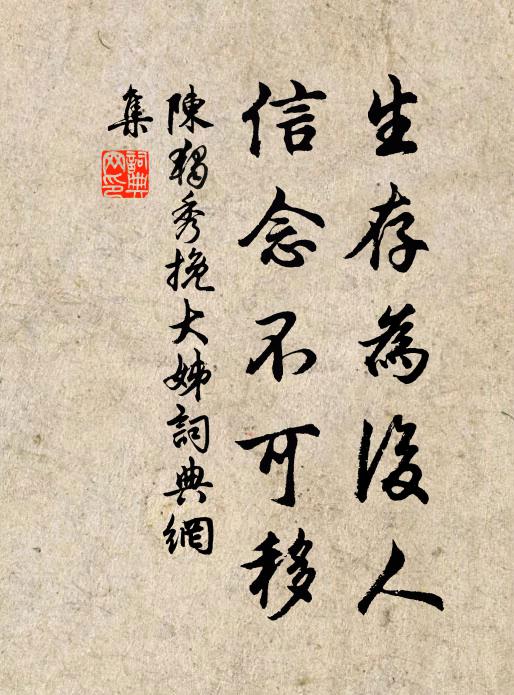 生存為後人
信念不可移
陳獨秀挽大姊詞典網
集
詞典
网印